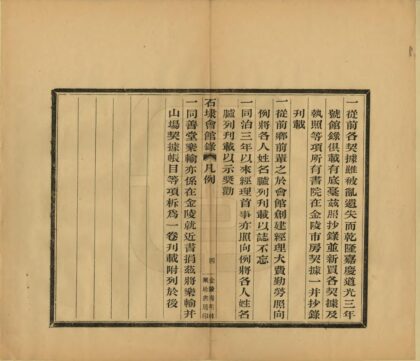 一從前各契據雖被亂遺失而乾隆嘉慶道光三年
號館錄俱載有底毫茲照抄錄並新買各契據及
執照等項所有書院在金陵市房契據一并抄錄
刊載
一從前鄉前輩之於會館創建經理大費勤勞照向
例將各人姓名臚列刊載以誌不忘
一同治三年以來經理首事亦照向例將各人姓名
臚列刊載以示奖勸
石埭會館錄 凡例
四
一同善堂樂輸亦係在金陵就近書捐茲將樂輸并
山塲契據帳目等項拆為一卷刊載附列於後